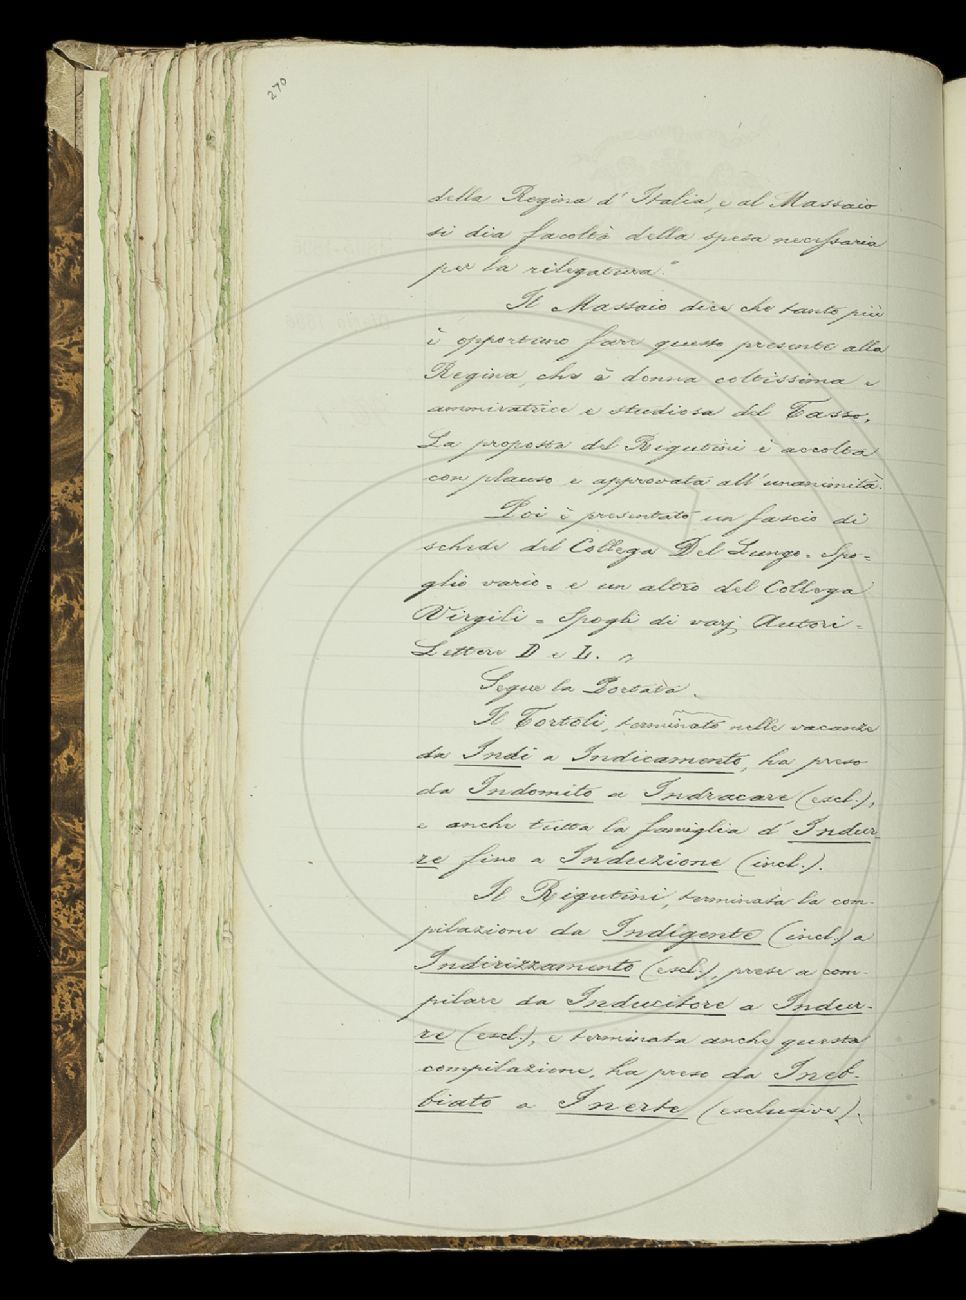 270
della Regina d'Italia, e al Massaio
si dia facoltà della spesa necessaria
per la rilegatura."
Il Massaio dice che tanto più
è opportuno fare questo presente alla
Regina, che è donna coltissima e
ammiratrice e studiosa del Tasso.
La proposta del Rigutini è accolta
con plauso e approvata all'unanimità.
Poi è presentato un fascio di
schede del Collega Del Lungo = Spo=
glio vario = e un altro del Collega
Virgili = Spogli di varj Autori =
Lettere D e L. "
Segue la Portata.
Il Tortoli, terminato nelle vacanze
da Indi a Indicamento, ha preso
da Indomito a Indracare (escl.),
e anche tutta la famiglia d'Indur-
re fino a Induzione (incl.).
Il Rigutini, terminata la com-
pilazione da Indigente (incl.) a
Indirizzamento (escl.), prese a com-
pilare da Inducitore a Indur-
re (escl.), e terminata anche questa
compilazione, ha preso da Ineb-
biato a Inerte (esclusive).